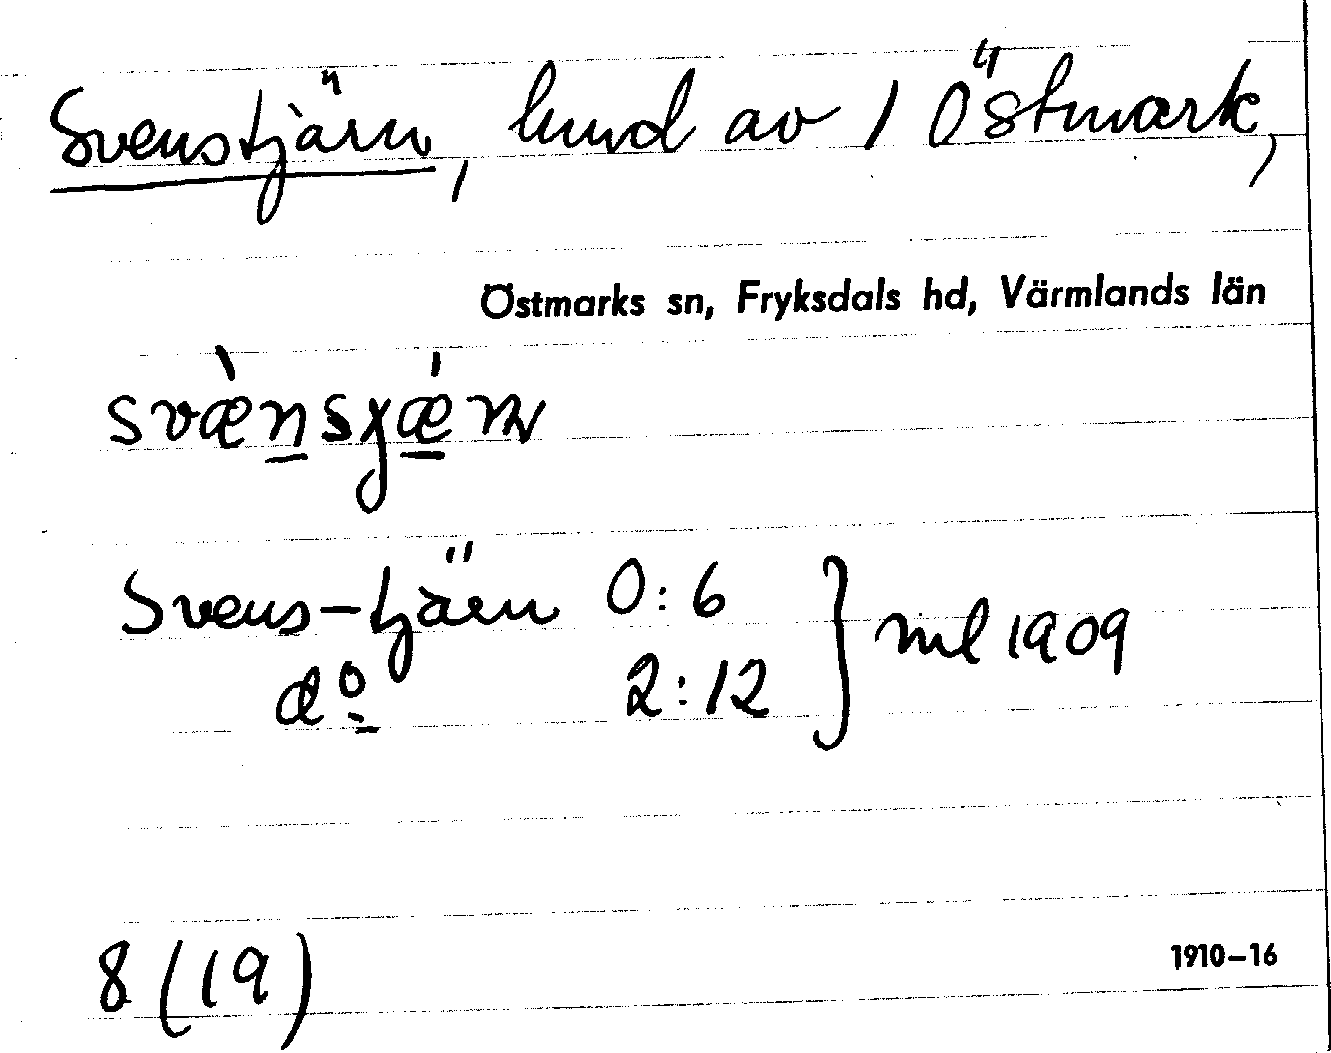 Svenstjärn, hmd av 1 Östmark,
Östmarks sn, Fryksdals hd, Värmlands län
svæ̀nsɣǽn
Svens-tjäen 0:6
dº 2:12 } ml 1909
8 (19)
1910–16